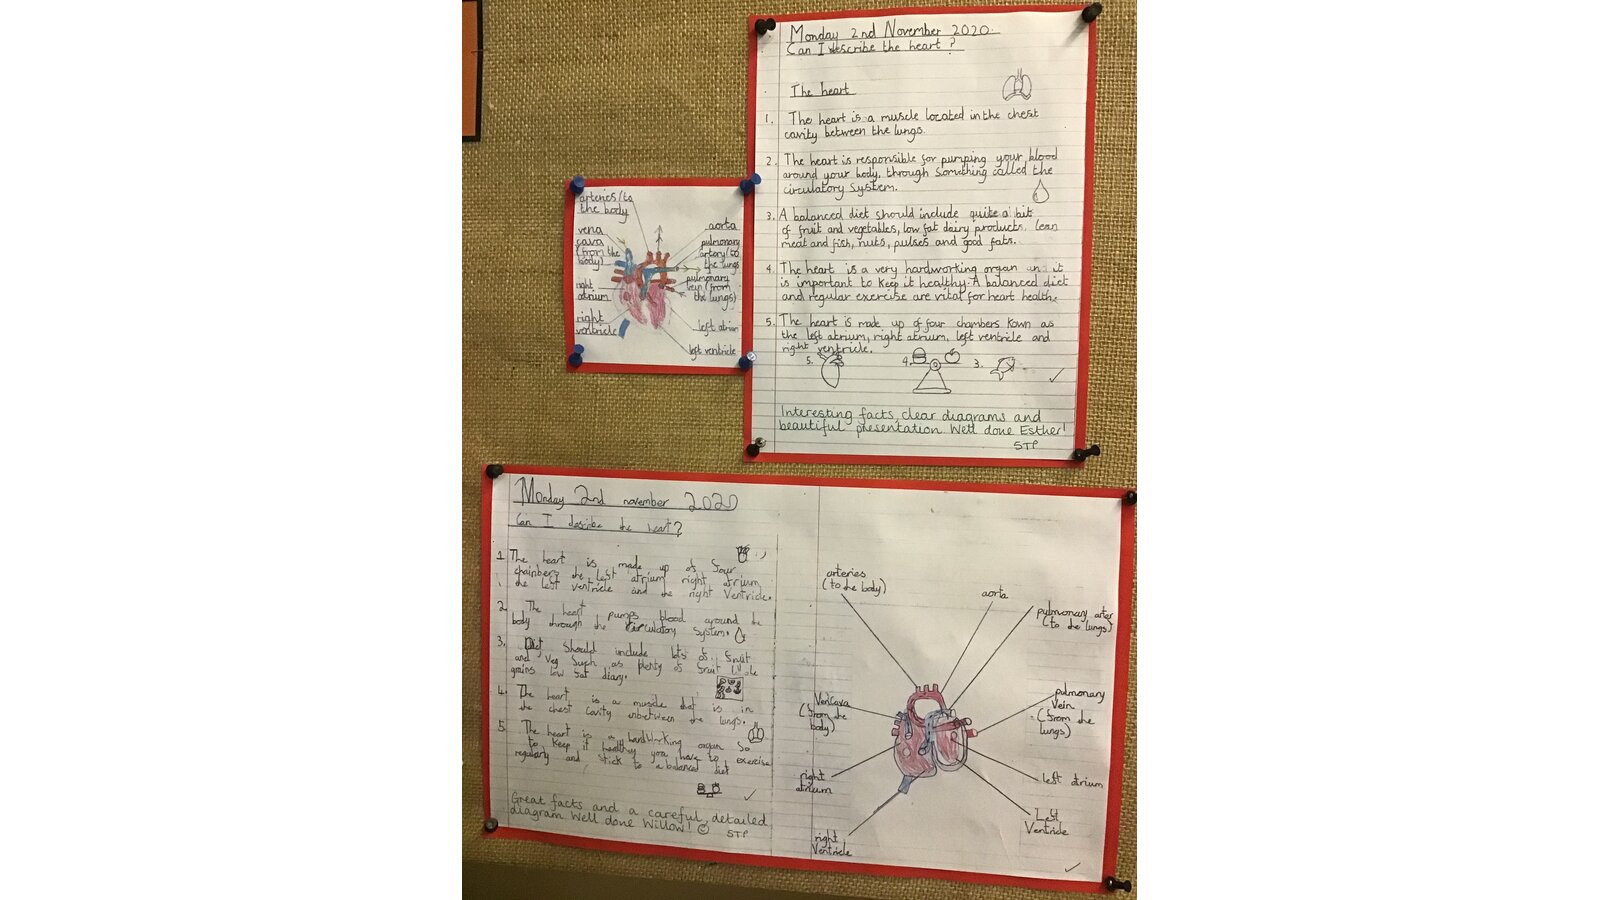 Monday 2nd November 2020
Can I describe the heart?
The heart
1. The heart is a muscle located in the chest
cavity between the lungs.
2. The heart is responsible for pumping your blood
around your body, through something called the
circulatory system.
3. A balanced diet should include quite a bit
of fruit and vegetables, low fat dairy products, lean
meat and fish, nuts, pulses and good fats.
4. The heart is a very hardworking organ and it
is important to keep it healthy. A balanced diet
and regular exercise are vital for heart health.
5. The heart is made up of four chambers kown as
the left atrium, right atrium, left ventricle and
right ventricle.
5. 4. 3.
Interesting facts, clear diagrams and
beautiful presentation. Well done Esther!
STP
arteries/to
the body
vena
cava
(from the
body)
right
atrium
right
ventricle
aorta
pulmonary
artery(to
the lungs
pulmonary
vein (from
the lungs)
left atrium
left ventricle
Monday 2nd november 2020
Can I describe the heart?
1. The heart is made up of four
chambers the left atrium right atrium
the left ventricle and the right ventricle.
2. The heart pumps blood around the
body through the circulatory system.
3. Diet should include lots of fruit
and veg such as plenty of fruit
grains low fat diary.
4. The heart is a muscle that is in
the chest cavity inbetween the lungs.
5. The heart is a hardworking organ so
to keep it healthy you have to exercise
regulary and stick to a balanced diet
Great facts and a careful, detailed
diagram. Well done Willow!
STP
arteries
(to the body)
aorta
pulmonary arter
(to the lungs)
VenCava
(from the
body)
pulmonary
Vein
(from the
lungs)
right
atrium
left atrium
right
Ventricle
Left
Ventricle